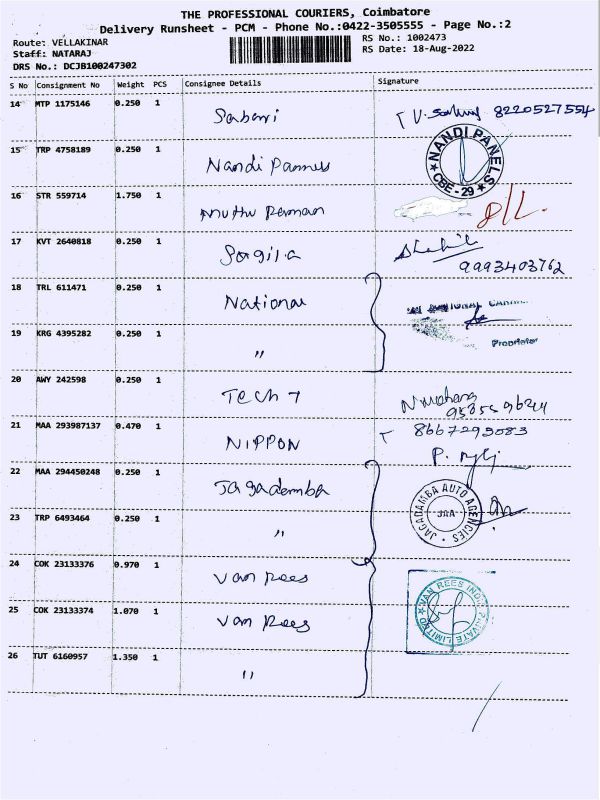 THE PROFESSIONAL COURIERS, Coimbatore
Delivery Runsheet - PCM - Phone No.:0422-3505555 - Page No.:2
Route: VELLAKINAR
RS No.: 1002473
Staff: NATARAJ
RS Date: 18-Aug-2022
DRS No.: DCJB100247302
S No Consignment No Weight PCS Consignee Details Signature
14 MTP 1175146 0.250 1 Sabari 8220527554
15 TRP 4758189 0.250 1 Nandi Pannels NANDI PANELS CBE-29
16 STR 559714 1.750 1 Muthu Raman
17 KVT 2640818 0.250 1 Sorgila
9993403762
18 TRL 611471 0.250 1 National
19 KRG 4395282 0.250 1 " Proprietor
20 AWY 242598 0.250 1 Tech 7
21 MAA 293987137 0.470 1 NIPPON 8667299083
22 MAA 294450248 0.250 1 Jagadamba
23 TRP 6493464 0.250 1 " JAGADAMBA AUTO AGENCIES JAA
24 COK 23133376 0.970 1 Van Rees
25 COK 23133374 1.070 1 Van Rees VAN REES INDIA PRIVATE LIMITED
26 TUT 6160957 1.350 1 "